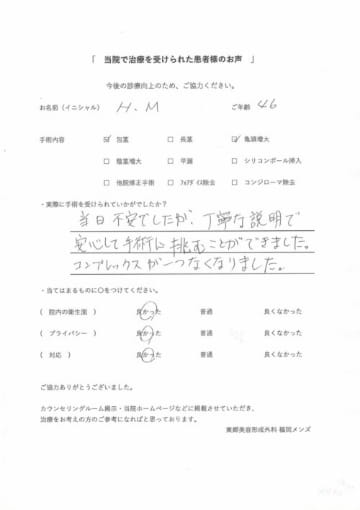 「 当院で治療を受けられた患者様のお声 」
今後の診療向上のため、ご協力ください。
お名前（イニシャル） H.M ご年齢 46
手術内容 ☑ 包茎 □ 長茎 ☑ 亀頭増大
□ 陰茎増大 □ 早漏 □ シリコンボール挿入
□ 他院修正手術 □ フォアダイス除去 □ コンジローマ除去
・実際に手術を受けられていかがでしたか？
当日不安でしたが、丁寧な説明で
安心して手術に挑むことができました。
コンプレックスが一つなくなりました。
・当てはまるものに〇をつけてください。
（ 院内の衛生面 ） 良かった 普通 良くなかった
（ プライバシー ） 良かった 普通 良くなかった
（ 対応 ） 良かった 普通 良くなかった
ご協力ありがとうございました。
カウンセリングルーム掲示・当院ホームページなどに掲載させていただき、
治療をお考えの方のご参考になればと思っております。
東郷美容形成外科 福岡メンズ